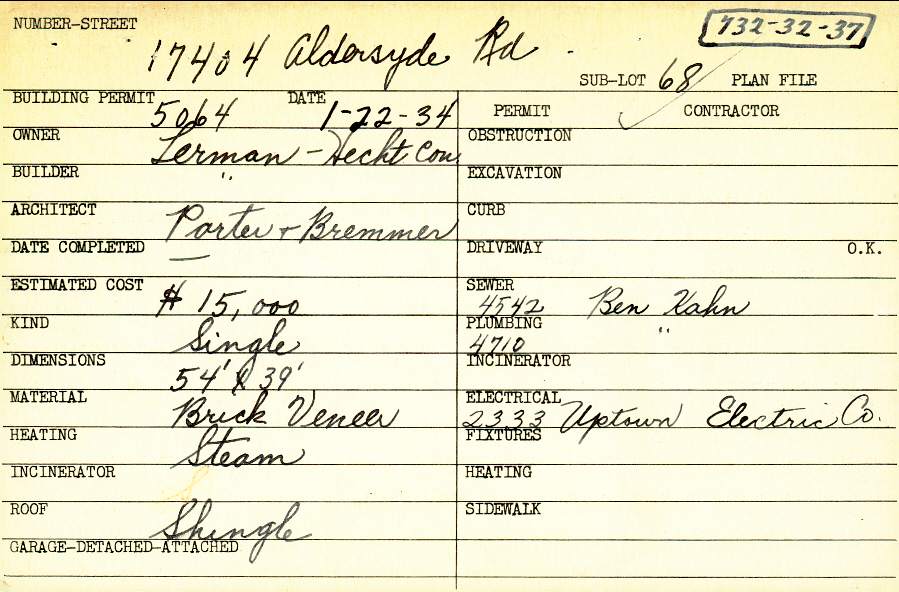 NUMBER-STREET
732-32-37
17404 Aldersyde Rd
SUB-LOT 68 PLAN FILE
BUILDING PERMIT 5064 DATE 1-22-34
PERMIT CONTRACTOR
OWNER Lerman - Hecht Con
OBSTRUCTION
BUILDER "
EXCAVATION
ARCHITECT Porter + Bremmer
CURB
DATE COMPLETED —
DRIVEWAY O.K.
ESTIMATED COST $ 15,000
SEWER 4542 Ben Kahn
KIND Single
PLUMBING 4710 "
DIMENSIONS 54' X 39'
INCINERATOR
MATERIAL Brick Veneer
ELECTRICAL 2333 Uptown Electric Co.
HEATING Steam
FIXTURES
INCINERATOR
HEATING
ROOF Shingle
SIDEWALK
GARAGE-DETACHED-ATTACHED